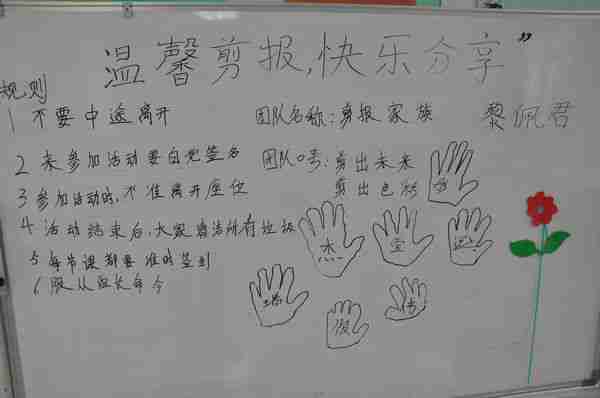 温馨剪报,快乐分享”
规则
1 不要中途离开
团队名称:剪报家族
黎佩君
2 来参加活动要自觉签名
团队口号:剪出未来
剪出色彩
3 参加活动时,不准离开座位
4 活动结束后,大家清洁所有垃圾
5 每节课都要准时签到
6 服从组长命令
杰
堂